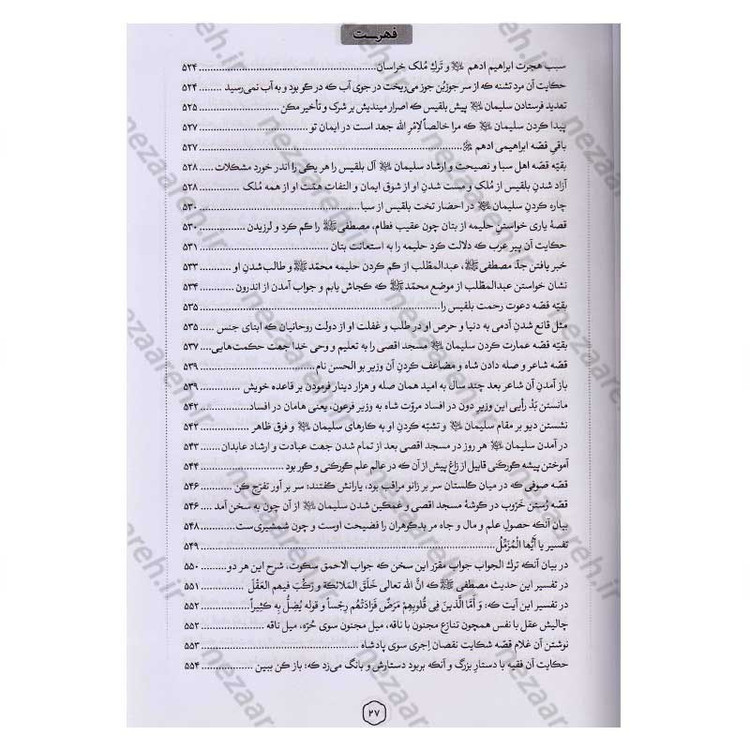 فهرست
سبب هجرت ابراهیم ادهم ﷺ و تَرکِ مُلک خراسان ۵۲۴
حکایت آن مرد تشنه که از سر جوزبُن جوز می‌ریخت در جوی آب که در گو بود و به آب نمی‌رسید ۵۲۴
تهدید فرستادن سلیمان ﷺ پیش بلقیس که اصرار میندیش بر شرک و تأخیر مکن ۵۲۵
پیدا کردن سلیمان ﷺ که مرا خالصاً لِاَمرِ الله جهد است در ایمان تو ۵۲۷
باقی قصّه ابراهیمی ادهم ﷺ ۵۲۷
بقیّه قصّه اهل سبا و نصیحت و ارشاد سلیمان ﷺ آل بلقیس را هر یکی را اندر خورد مشکلات ۵۲۸
آزاد شدنِ بلقیس از مُلک و مست شدنِ او از شوق ایمان و التفات همّت او از همه مُلک ۵۲۸
چاره کردنِ سلیمان ﷺ در احضار تخت بلقیس از سبا ۵۳۰
قصهٔ یاری خواستنِ حلیمه از بتان چون عقیب فطام، مصطفی ﷺ را گم کرد و لرزیدن ۵۳۰
حکایت آن پیر عرب که دلالت کرد حلیمه را به استعانت بتان ۵۳۱
خبر یافتن جدّ مصطفی ﷺ، عبدالمطّلب از گم کردن حلیمه محمّد ﷺ و طالب شدنِ او ۵۳۳
نشان خواستن عبدالمطّلب از موضع محمّد ﷺ که کجاش یابم و جواب آمدن از اندرون ۵۳۴
بقیّه قصّه دعوت رحمت بلقیس را ۵۳۵
مثل قانع شدنِ آدمی به دنیا و حرص او در طلب و غفلت او از دولت روحانیان که ابنای جنس ۵۳۵
بقیّه قصّه عمارت کردن سلیمان ﷺ مسجد اقصی را به تعلیم و وحی خدا جهت حکمت‌هایی ۵۳۷
قصّه شاعر و صله دادن شاه و مضاعف کردنِ آن وزیر بو الحسن نام ۵۳۹
باز آمدنِ آن شاعر بعد چند سال به امید همان صله و هزار دینار فرمودن بر قاعده خویش ۵۳۹
مانستن بَد رأیی این وزیر دون در افساد مروّت شاه به وزیر فرعون، یعنی هامان در افساد ۵۴۲
نشستن دیو بر مقام سلیمان ﷺ و تشبّه کردنِ او به کارهای سلیمان ﷺ و فرق ظاهر ۵۴۲
در آمدن سلیمان ﷺ هر روز در مسجد اقصی بعد از تمام شدن جهت عبادت و ارشاد عابدان ۵۴۳
آموختن پیشه گورکنی قابیل از زاغ پیش از آن که در عالم علم گورکنی و گور بود ۵۴۴
قصّه صوفی که در میان گلستان سر بر زانو مراقب بود، یارانش گفتند: سر بر آور تفرّج کن ۵۴۶
قصّه رُستن خَرّوب در گوشهٔ مسجد اقصی و غمگین شدن سلیمان ﷺ از آن چون به سخن آمد ۵۴۶
بیان آنکه حصول علم و مال و جاه مر بدگوهران را فضیحت اوست و چون شمشیری‌ست ۵۴۸
تفسیر یا أَیُّهَا الْمُزَمِّلُ ۵۴۹
در بیان آنکه ترک الجواب جواب مقرّر این سخن که جواب الاحمق سکوت، شرح این هر دو ۵۵۰
در تفسیر این حدیث مصطفی ﷺ که انَّ الله تعالی خَلَقَ المَلائکة و رَکَّبَ فیهم العَقْلَ ۵۵۱
در تفسیر این آیت که: وَ أمّا الَّذینَ فِی قُلُوبِهِمْ مَرَضٌ فَزادَتْهُم رِجْساً و قوله یُضِلُّ به کَثیراً ۵۵۲
چالیش عقل با نفس همچون تنازع مجنون با ناقه، میل مجنون سوی حُرّه، میل ناقه ۵۵۲
نوشتن آن غلام قصّه شکایت نقصان اِجری سوی پادشاه ۵۵۳
حکایت آن فقیه با دستارِ بزرگ و آنکه بربود دستارش و بانگ می‌زد که: باز کن ببین ۵۵۴
۲۷
nezaareh.ir